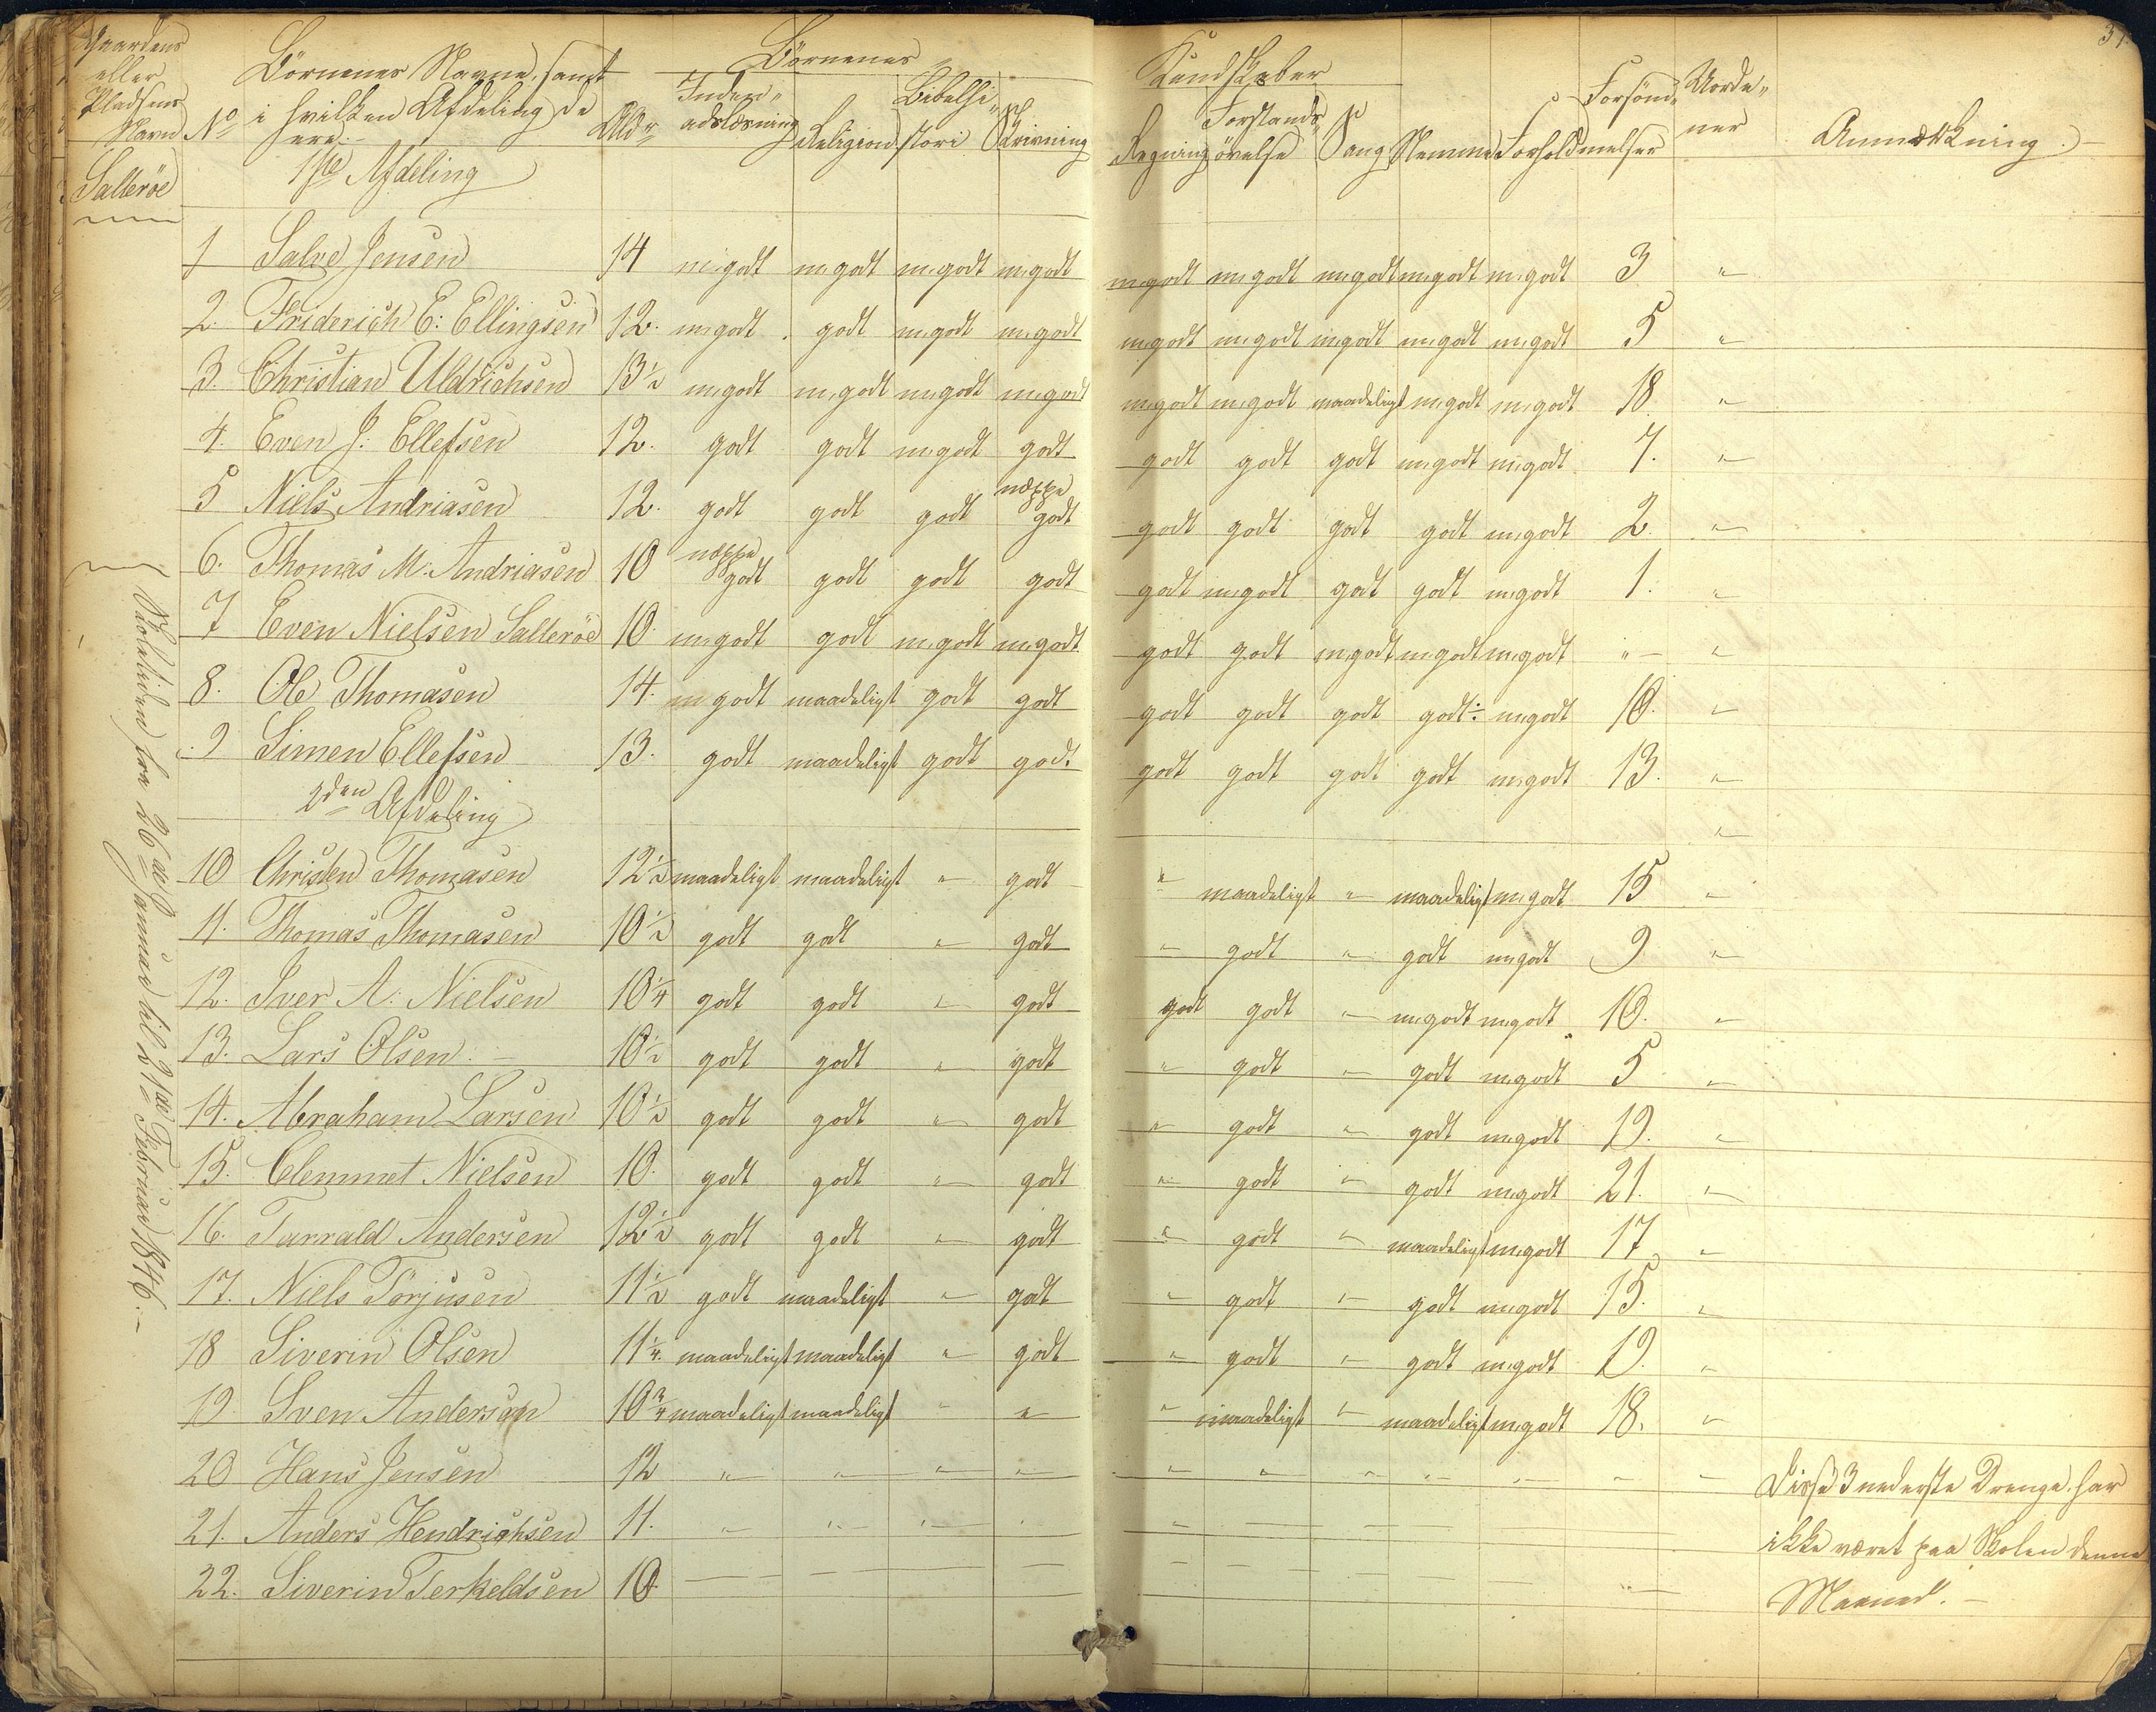 37.
Gaardens eller Pladsens Navn | No | Børnenes Navne, samt i hvilken Afdeling de ere:– | Aldr | Børnenes Kundskaber
Inden- adslæsning | Religion | Bibelhi- stori | Skrivning | Regning | Forstands- øvelse | Sang | Nemme | Forhold | Forsöm- melser | Uorde- ner | Anmærkning.–
Salteröe | 1ste Afdeling
1 Salve Jensen 14 m.godt m.godt m.godt m.godt m.godt m.godt m.godt m.godt m.godt 3 "
2. Friderich E: Ellingsen 12. m.godt godt m.godt m.godt m.godt m.godt m.godt m.godt m.godt 5 "
3. Christian Uldrichsen 13½ m.godt m.godt m.godt m.godt m.godt m.godt maadeligt m.godt m.godt 18. "
4. Even J: Ellefsen 12. godt godt m.godt godt godt godt godt m.godt m.godt 7. "
5 Niels Andriasen 12. godt godt godt næppe godt godt godt godt godt m.godt 2. "
6. Thomas M. Andriasen 10 næppe godt godt godt godt godt m.godt godt godt m.godt 1. "
7 Even Nielsen Salteröe 10. m.godt godt m.godt m.godt godt godt m.godt m.godt m.godt " "
8. Ole Thomasen 14. m godt maadeligt godt godt godt godt godt godt÷ m.godt 10. "
9 Simen Ellefsen 13. godt maadeligt godt godt godt godt godt godt m.godt 13. "
2den Afdeling "
10 Christen Thomasen 12½ maadeligt maadeligt " godt " maadeligt " maadeligt m.godt 15 "
11. Thomas Thomasen 10½ godt godt " godt " godt " godt m.godt 9 "
12. Iver A: Nielsen 10¼ godt godt " godt godt godt " m.godt m.godt 10. "
13. Lars Olsen. – 10½ godt godt " godt " godt " godt m.godt 5 "
14. Abraham Larsen 10½ godt godt " godt " godt " godt m.godt 19. "
15. Clemmet Nielsen 10. godt godt " godt " godt " godt m.godt 21. "
16. Tarrald Andersen 12½ godt godt " godt " godt " maadeligt m.godt 17 "
17. Niels Törjusen 11½ godt maadeligt " godt " godt " godt m.godt 15. "
18 Siverin Olsen 11¼. maadeligt maadeligt " godt " godt " godt m.godt 19. "
19 Sven Anderson 10¾ maadeligt maadeligt " " " maadeligt " maadeligt m.godt 18. "
20 Hans Jensen 12 " " " " " " " " " " " Disse 3 nederste Drenge har
21. Anders Hendrichsen 11. " " " " " – – – – – – ikke været paa Skolen denne
22. Siverin Terkeldsen 10. – – – – – – – – – " Maaned. –
Skoletiden fra 26de Januar til 21de Februar 1846.–